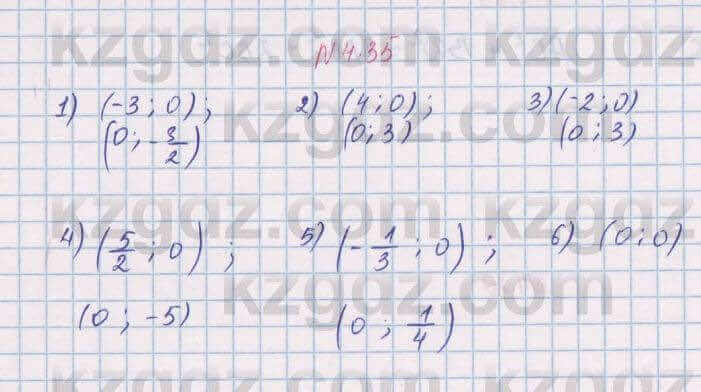 kzgdz.com kzgdz.com
№ 4.35
1) (-3 ; 0) ; 2) (4 ; 0) ; 3) (-2 ; 0)
(0 ; -3/2) (0 ; 3) (0 ; 3)
kzgdz.com
4) (5/2 ; 0) ; 5) (-1/3 ; 0) ; 6) (0 ; 0)
kzgdz.com
(0 ; -5) (0 ; 1/4)